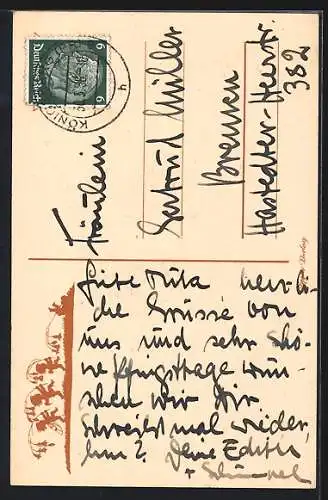 Deutsches Reich
6 6
KÖNIG
Fräulein
Gertrud Müller
Bremen
Hastedter-Heerstr.
382
Gute Tuta herzli-
che Grüsse von
uns und sehr schö-
ne Pfingsttage wün-
schen wir Dir.
Schreibst mal wieder,
hm? Deine Edith
+